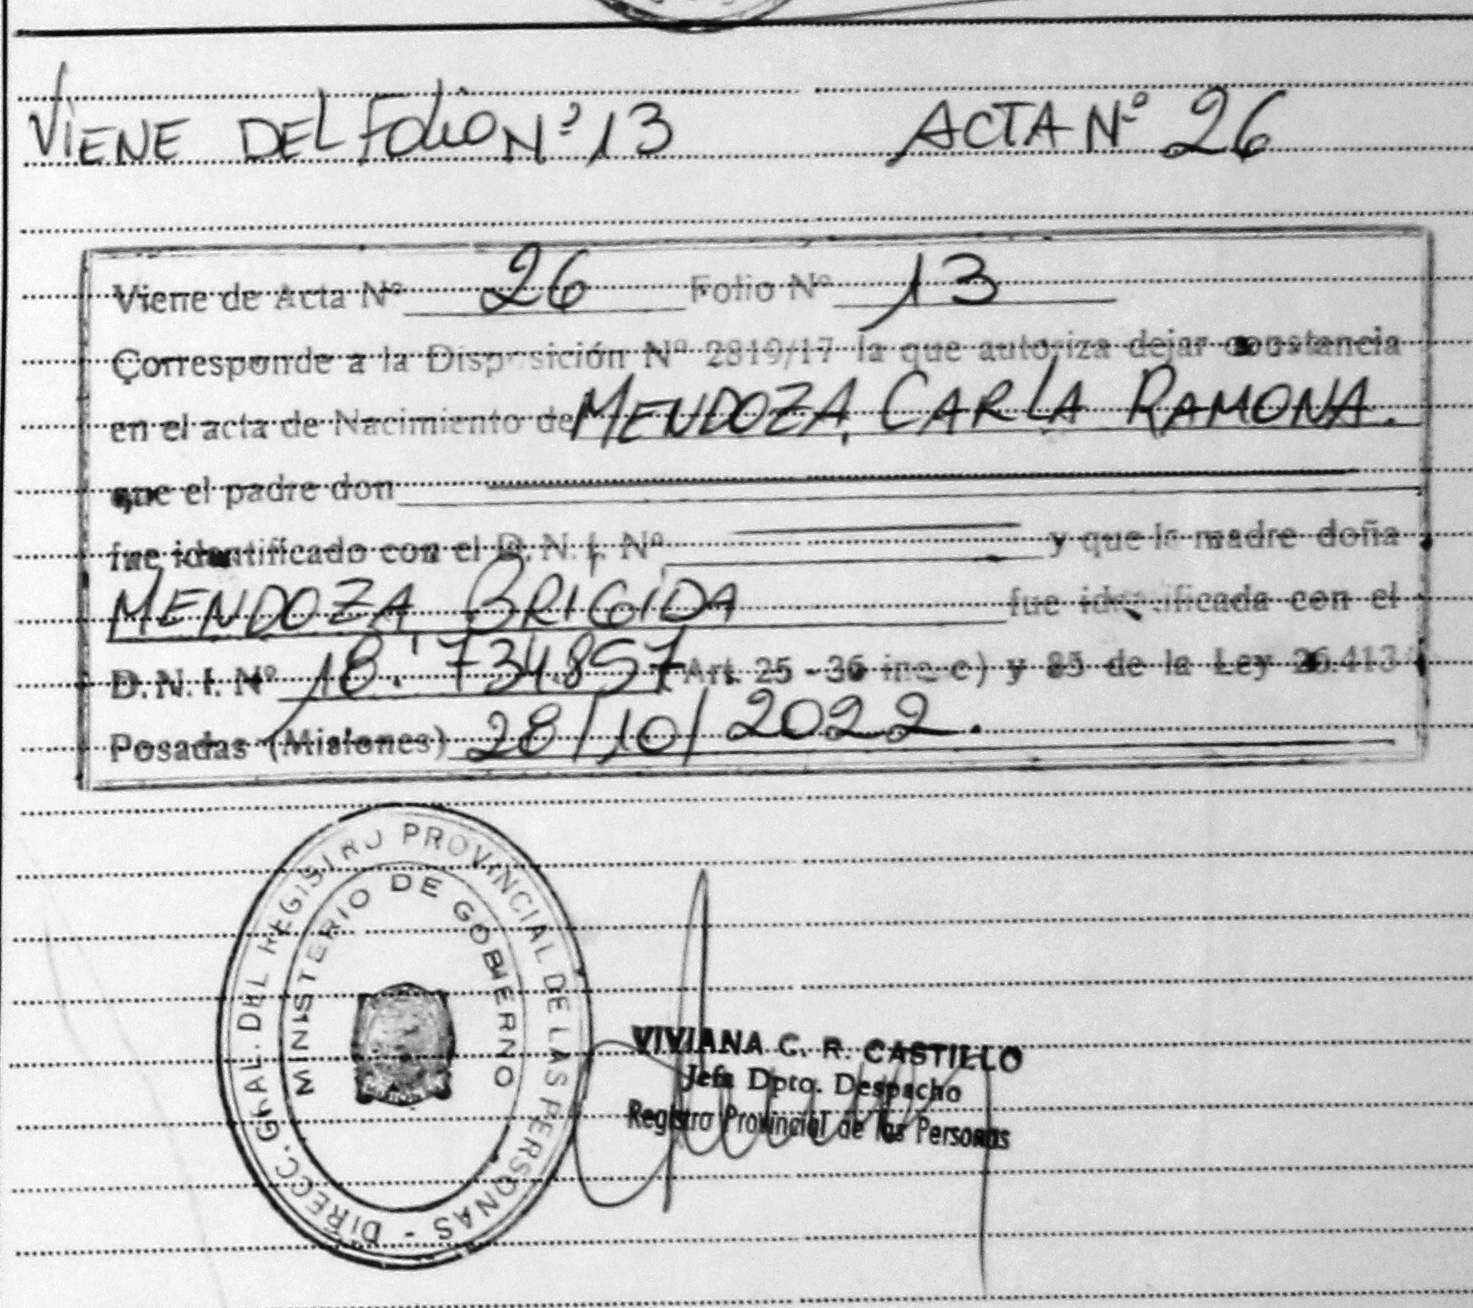 VIENE DEL FOLIO Nº 13 ACTA Nº 26
Viene de Acta Nº 26 Folio Nº 13
Corresponde a la Disposición Nº 2819/17 la que autoriza dejar constancia
en el acta de Nacimiento de MENDOZA, CARLA RAMONA.
que el padre don
fue identificado con el D.N.I. Nº y que la madre doña
MENDOZA BRIGIDA fue identificada con el
D.N.I. Nº 18.734.857 Art. 25 - 36 inc. c) y 85 de la Ley 26.413
Posadas (Misiones) 28/10/2022.
DIRECC. GRAL. DEL REGISTRO PROVINCIAL DE LAS PERSONAS -
MINISTERIO DE GOBIERNO
VIVIANA C. R. CASTILLO
Jefa Dpto. Despacho
Registro Provincial de las Personas